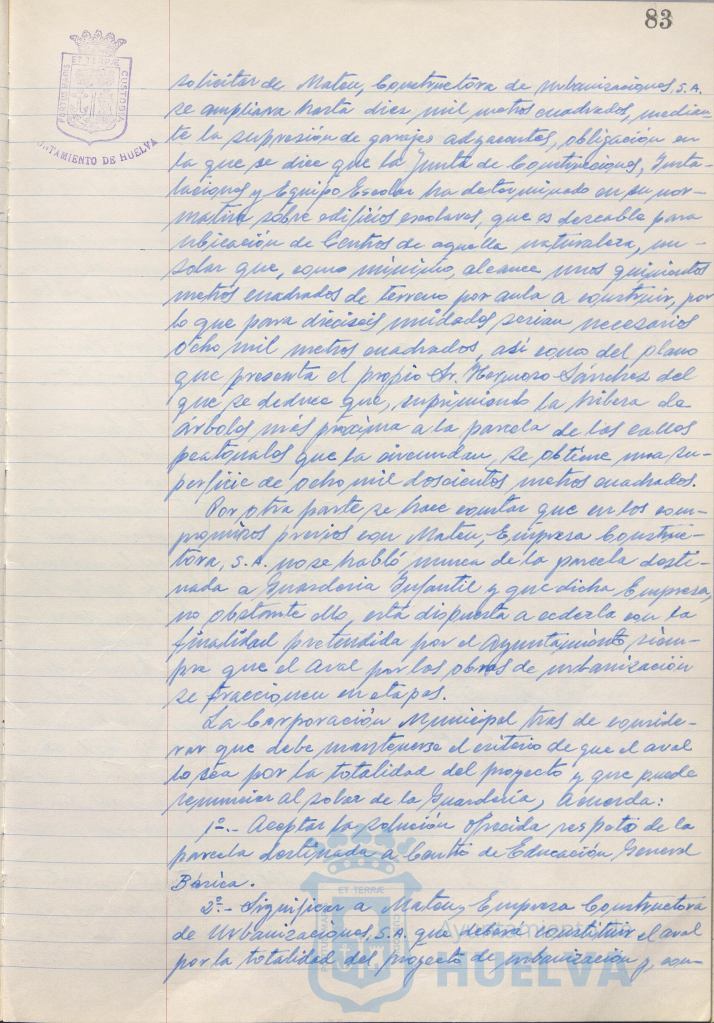 83
ET TERRÆ
PORTUS MARIS
CUSTODIA
AYUNTAMIENTO DE HUELVA
solicitar de Mateu, Constructora de Urbanizaciones, S.A.
se ampliara hasta diez mil metros cuadrados, median-
te la supresión de garajes adyacentes, obligación en
la que se dice que la Junta de Construcciones, Insta-
laciones y Equipo Escolar ha determinado en su nor-
mativa sobre edificios escolares, que es deseable para
ubicación de Centros de aquella naturaleza, un
solar que, como mínimo, alcance unos quinientos
metros cuadrados de terreno por aula a construir, por
lo que para dieciseis unidades serian necesarios
ocho mil metros cuadrados, así como del plano
que presenta el propio Sr. Hermoso Sánchez del
que se deduce que, suprimiendo la hilera de
árboles más próxima a la parcela de las calles
peatonales que la circundan, se obtiene una su-
perficie de ocho mil doscientos metros cuadrados.
Por otra parte se hace constar que en los com-
promisos previos con Mateu, Empresa Construc-
tora, S.A. no se habló nunca de la parcela desti-
nada a Guarderia Infantil y que dicha Empresa,
no obstante ello, está dispuesta a cederla con la
finalidad pretendida por el Ayuntamiento, siem-
pre que el aval por las obras de urbanización
se fraccionen en etapas.
La Corporación Municipal tras de conside-
rar que debe mantenerse el criterio de que el aval
lo sea por la totalidad del proyecto y que puede
renunciar al solar de la Guarderia, Acuerda:
1º.- Aceptar la solución ofrecida respeto de la
parcela destinada a Centro de Educación General
Básica.
2º.- Significar a Mateu, Empresa Constructora
de Urbanizaciones, S.A. que deberá constituir el aval
por la totalidad del proyecto de urbanización y, con-
ET TERRÆ
PORTUS MARIS
CUSTODIA
Ayuntamiento
HUELVA